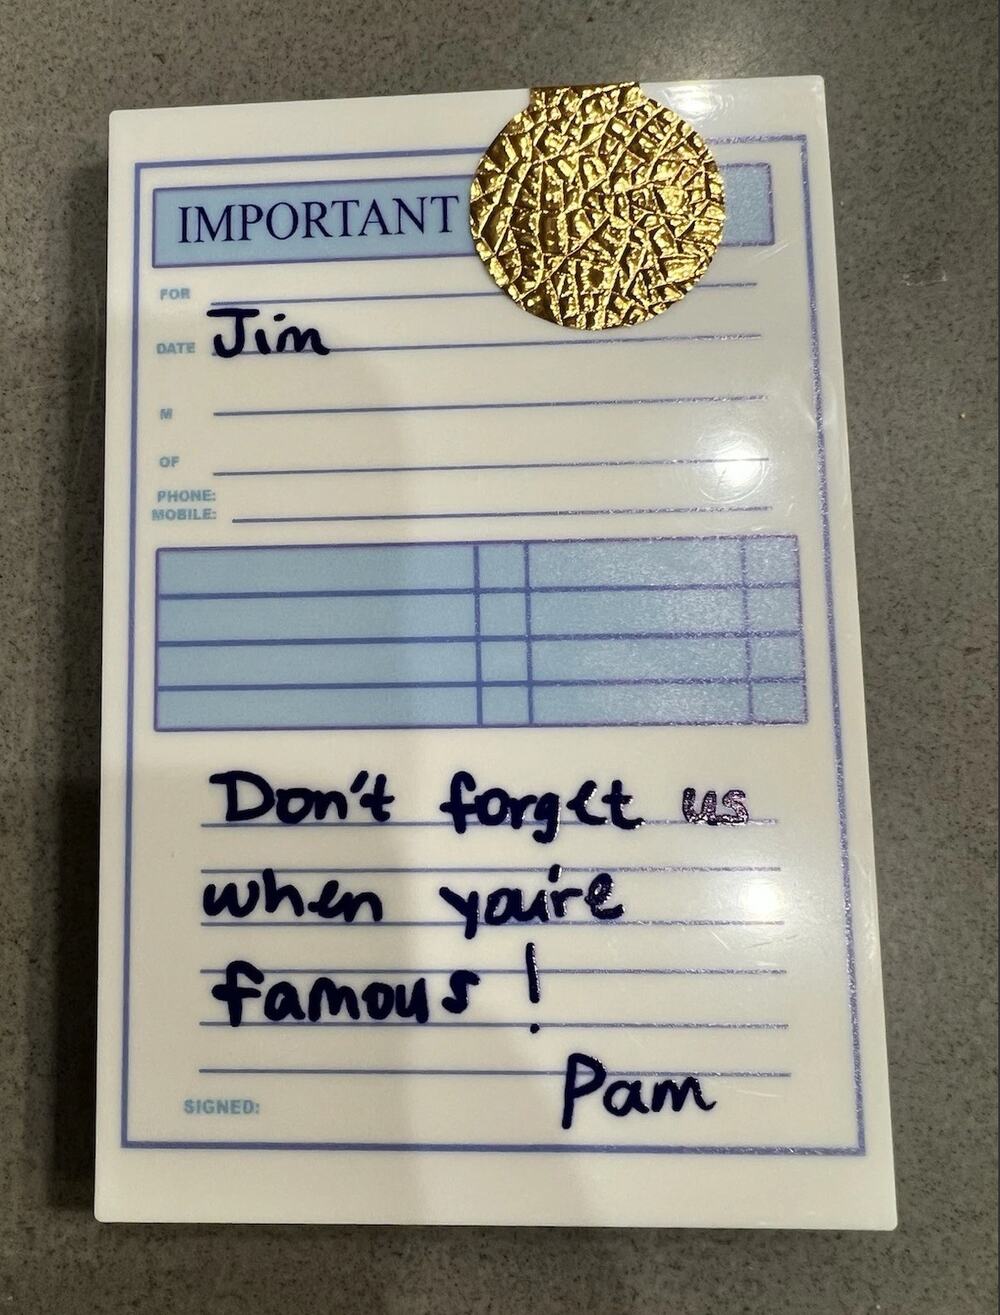 IMPORTANT
FOR
DATE Jim
M
OF
PHONE:
MOBILE:
Don't forget us
when you're
famous!
Pam
SIGNED: